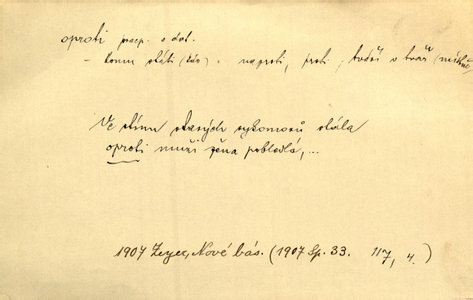 oproti praep. s dat.
– komu státi (kde). naproti, proti, tváří v tvář
Ve stínu starých sykomorů stála
oproti muži žena pobledlá,...
1907 Zeyer, Nové bás. (1907 Sp. 33. 117, 4.)